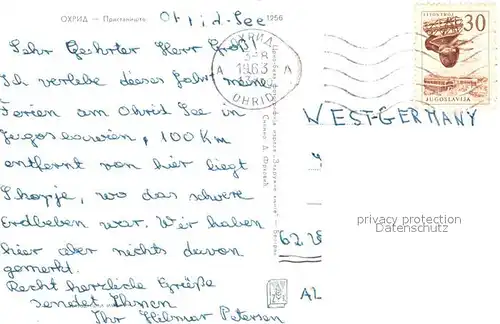 ОХРИД — Пристаниште
Ohrid-See
1256
Sehr Geehrter Herr Groß!
Ich verlebe dieses Jahr meine
Ferien am Ohrid See in
Jugoslawien, 100 Km
entfernt von hier liegt
Skopje, wo das schwere
Erdbeben war. Wir haben
hier aber nichts davon
gemerkt.
Recht herzliche Grüße
sendet Ihnen
Ihr Hilmar Petersen
ОХРИД
1963
A A
OHRID
30
JUGOSLAVIJA
WEST-GERMANY
privacy protection
Datenschutz
62
AL